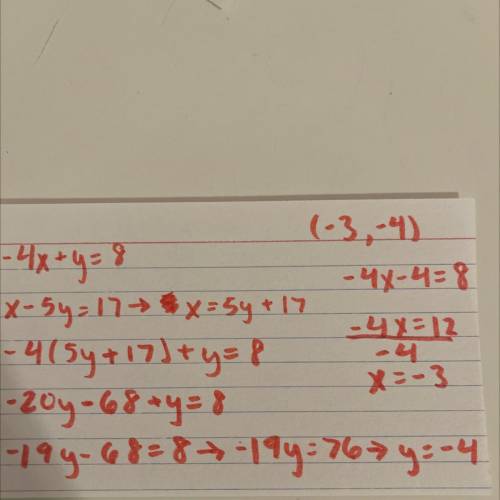 (-3, -4)
-4x+y=8
x-5y=17→ x=5y+17
-4(5y+17)+y=8
-20y-68+y=8
-19y-68=8→-19y=76→y=-4
-4x-4=8
-4x=12
-4
x=-3